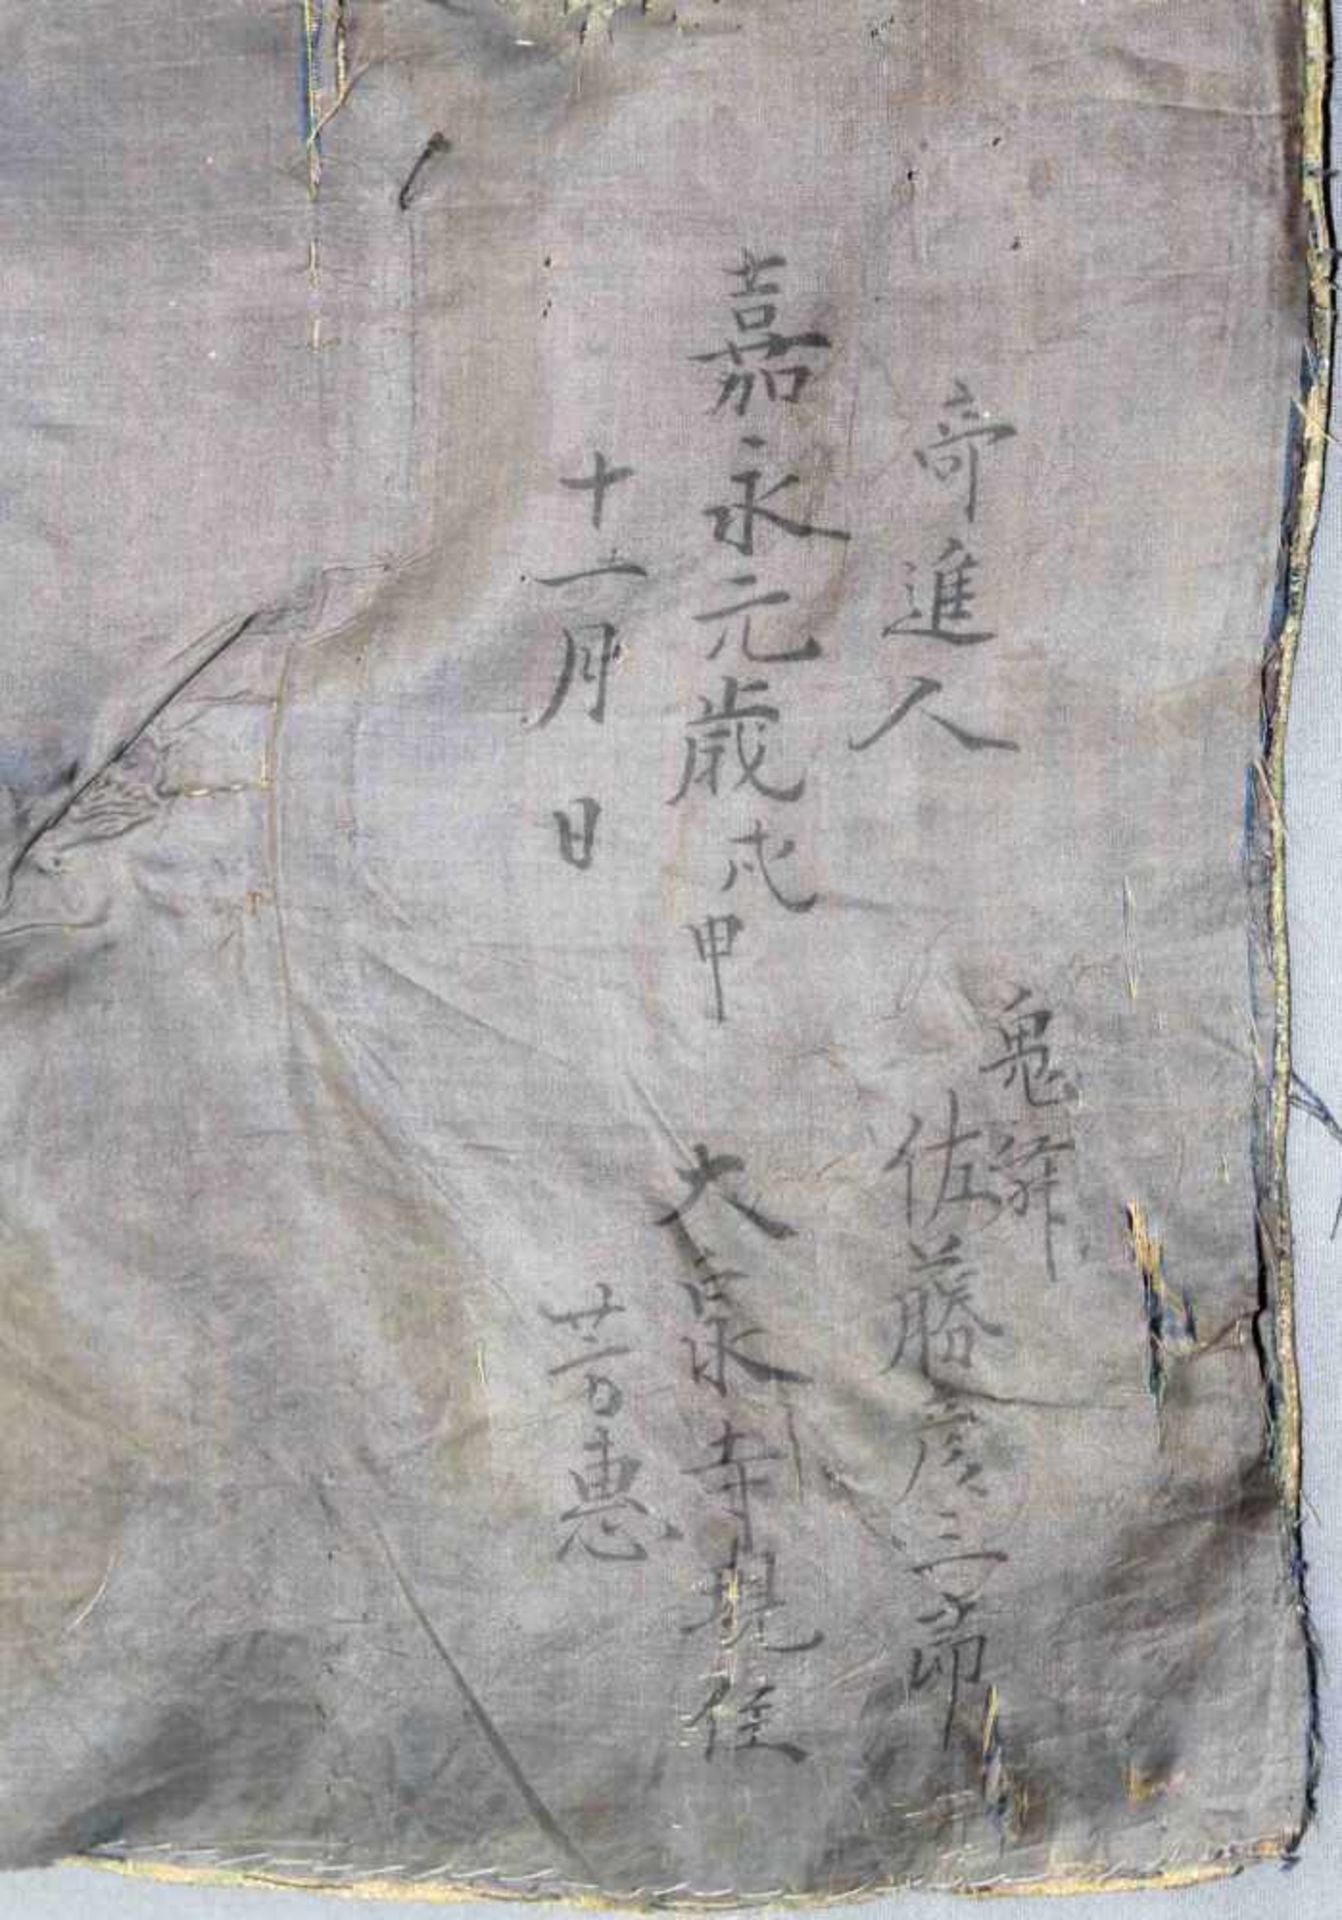 寄進人 佐藤彦三郎
嘉永元歳戊申 大泉寺現住
十一月日 芳惠